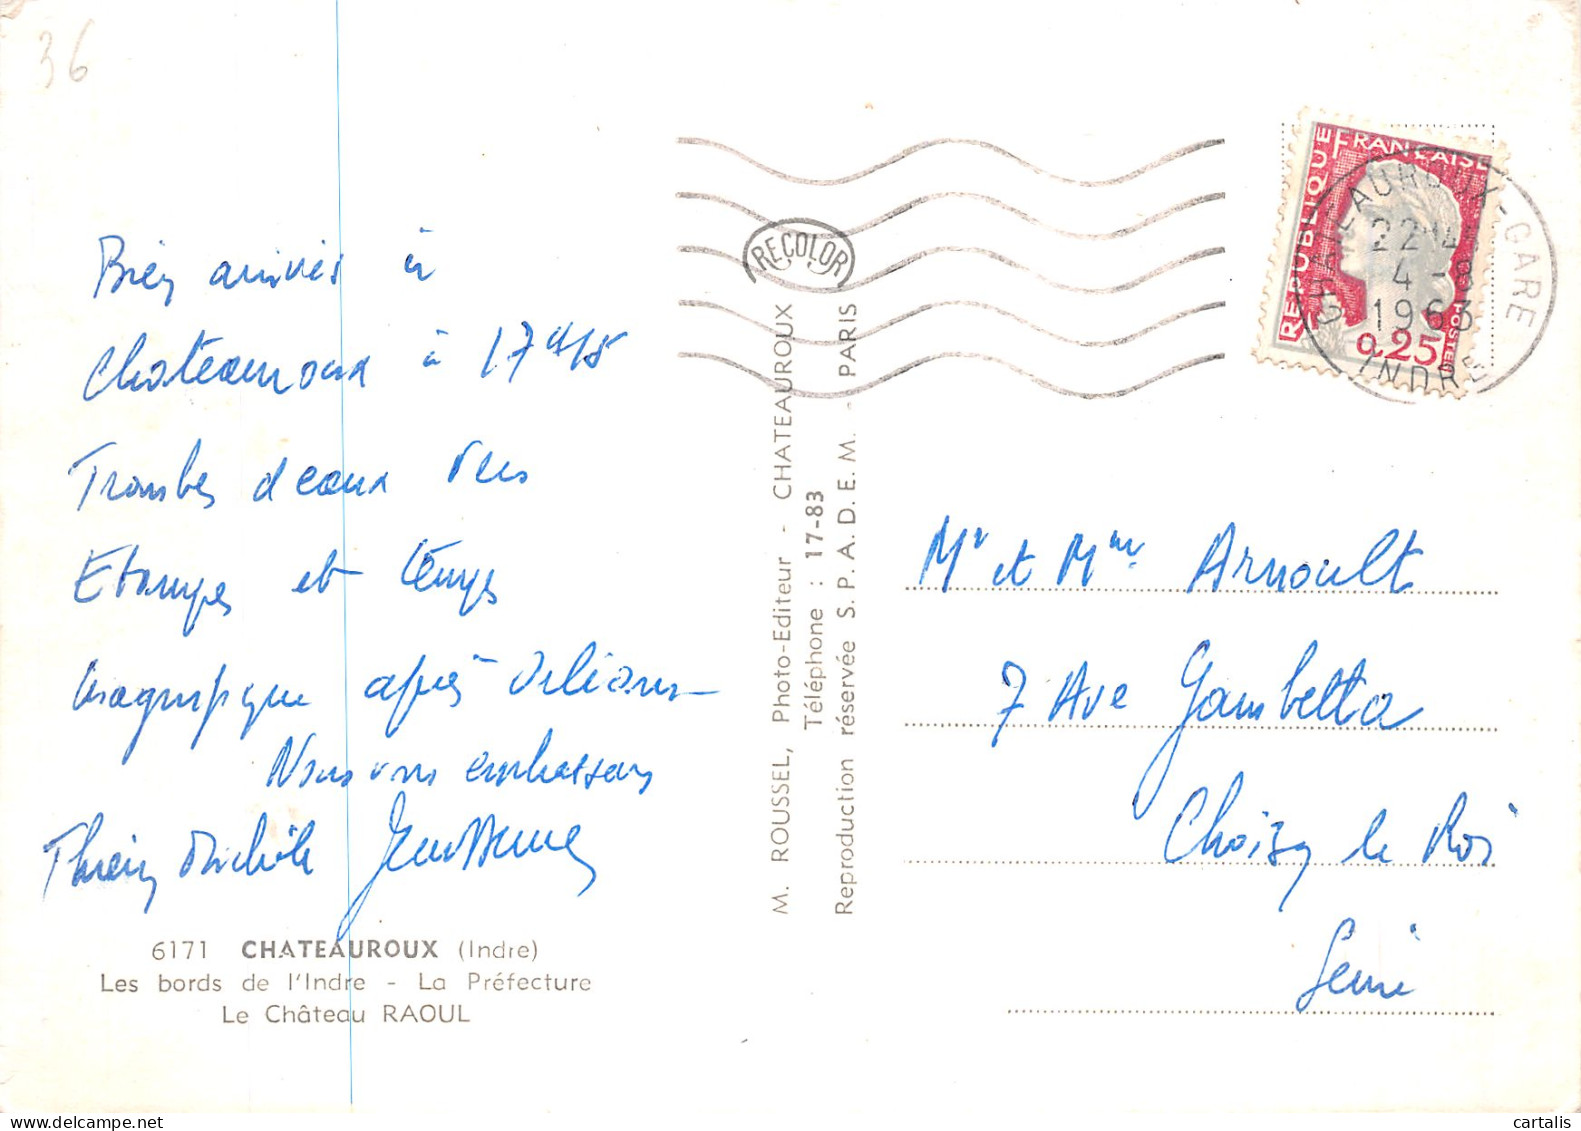 36
Bien arrivés à
Chateauroux à 17h15
Trombes d'eaux vers
Etampes et temps
magnifique après Orléans
Nous vous embrassons
Thierry Michèle
6171 CHATEAUROUX (Indre)
Les bords de l'Indre - La Préfecture
Le Château RAOUL
RECOLOR
M. ROUSSEL, Photo-Editeur - CHATEAUROUX
Téléphone : 17-83
Reproduction réservée S. P. A. D. E. M. - PARIS
REPUBLIQUE FRANÇAISE
POSTES
0,25
CHATEAUROUX-GARE
22H
4-8
1963
INDRE
Mr et Mme Arnoult
7 Ave Gambetta
Choisy le Roi
Seine
cartalis